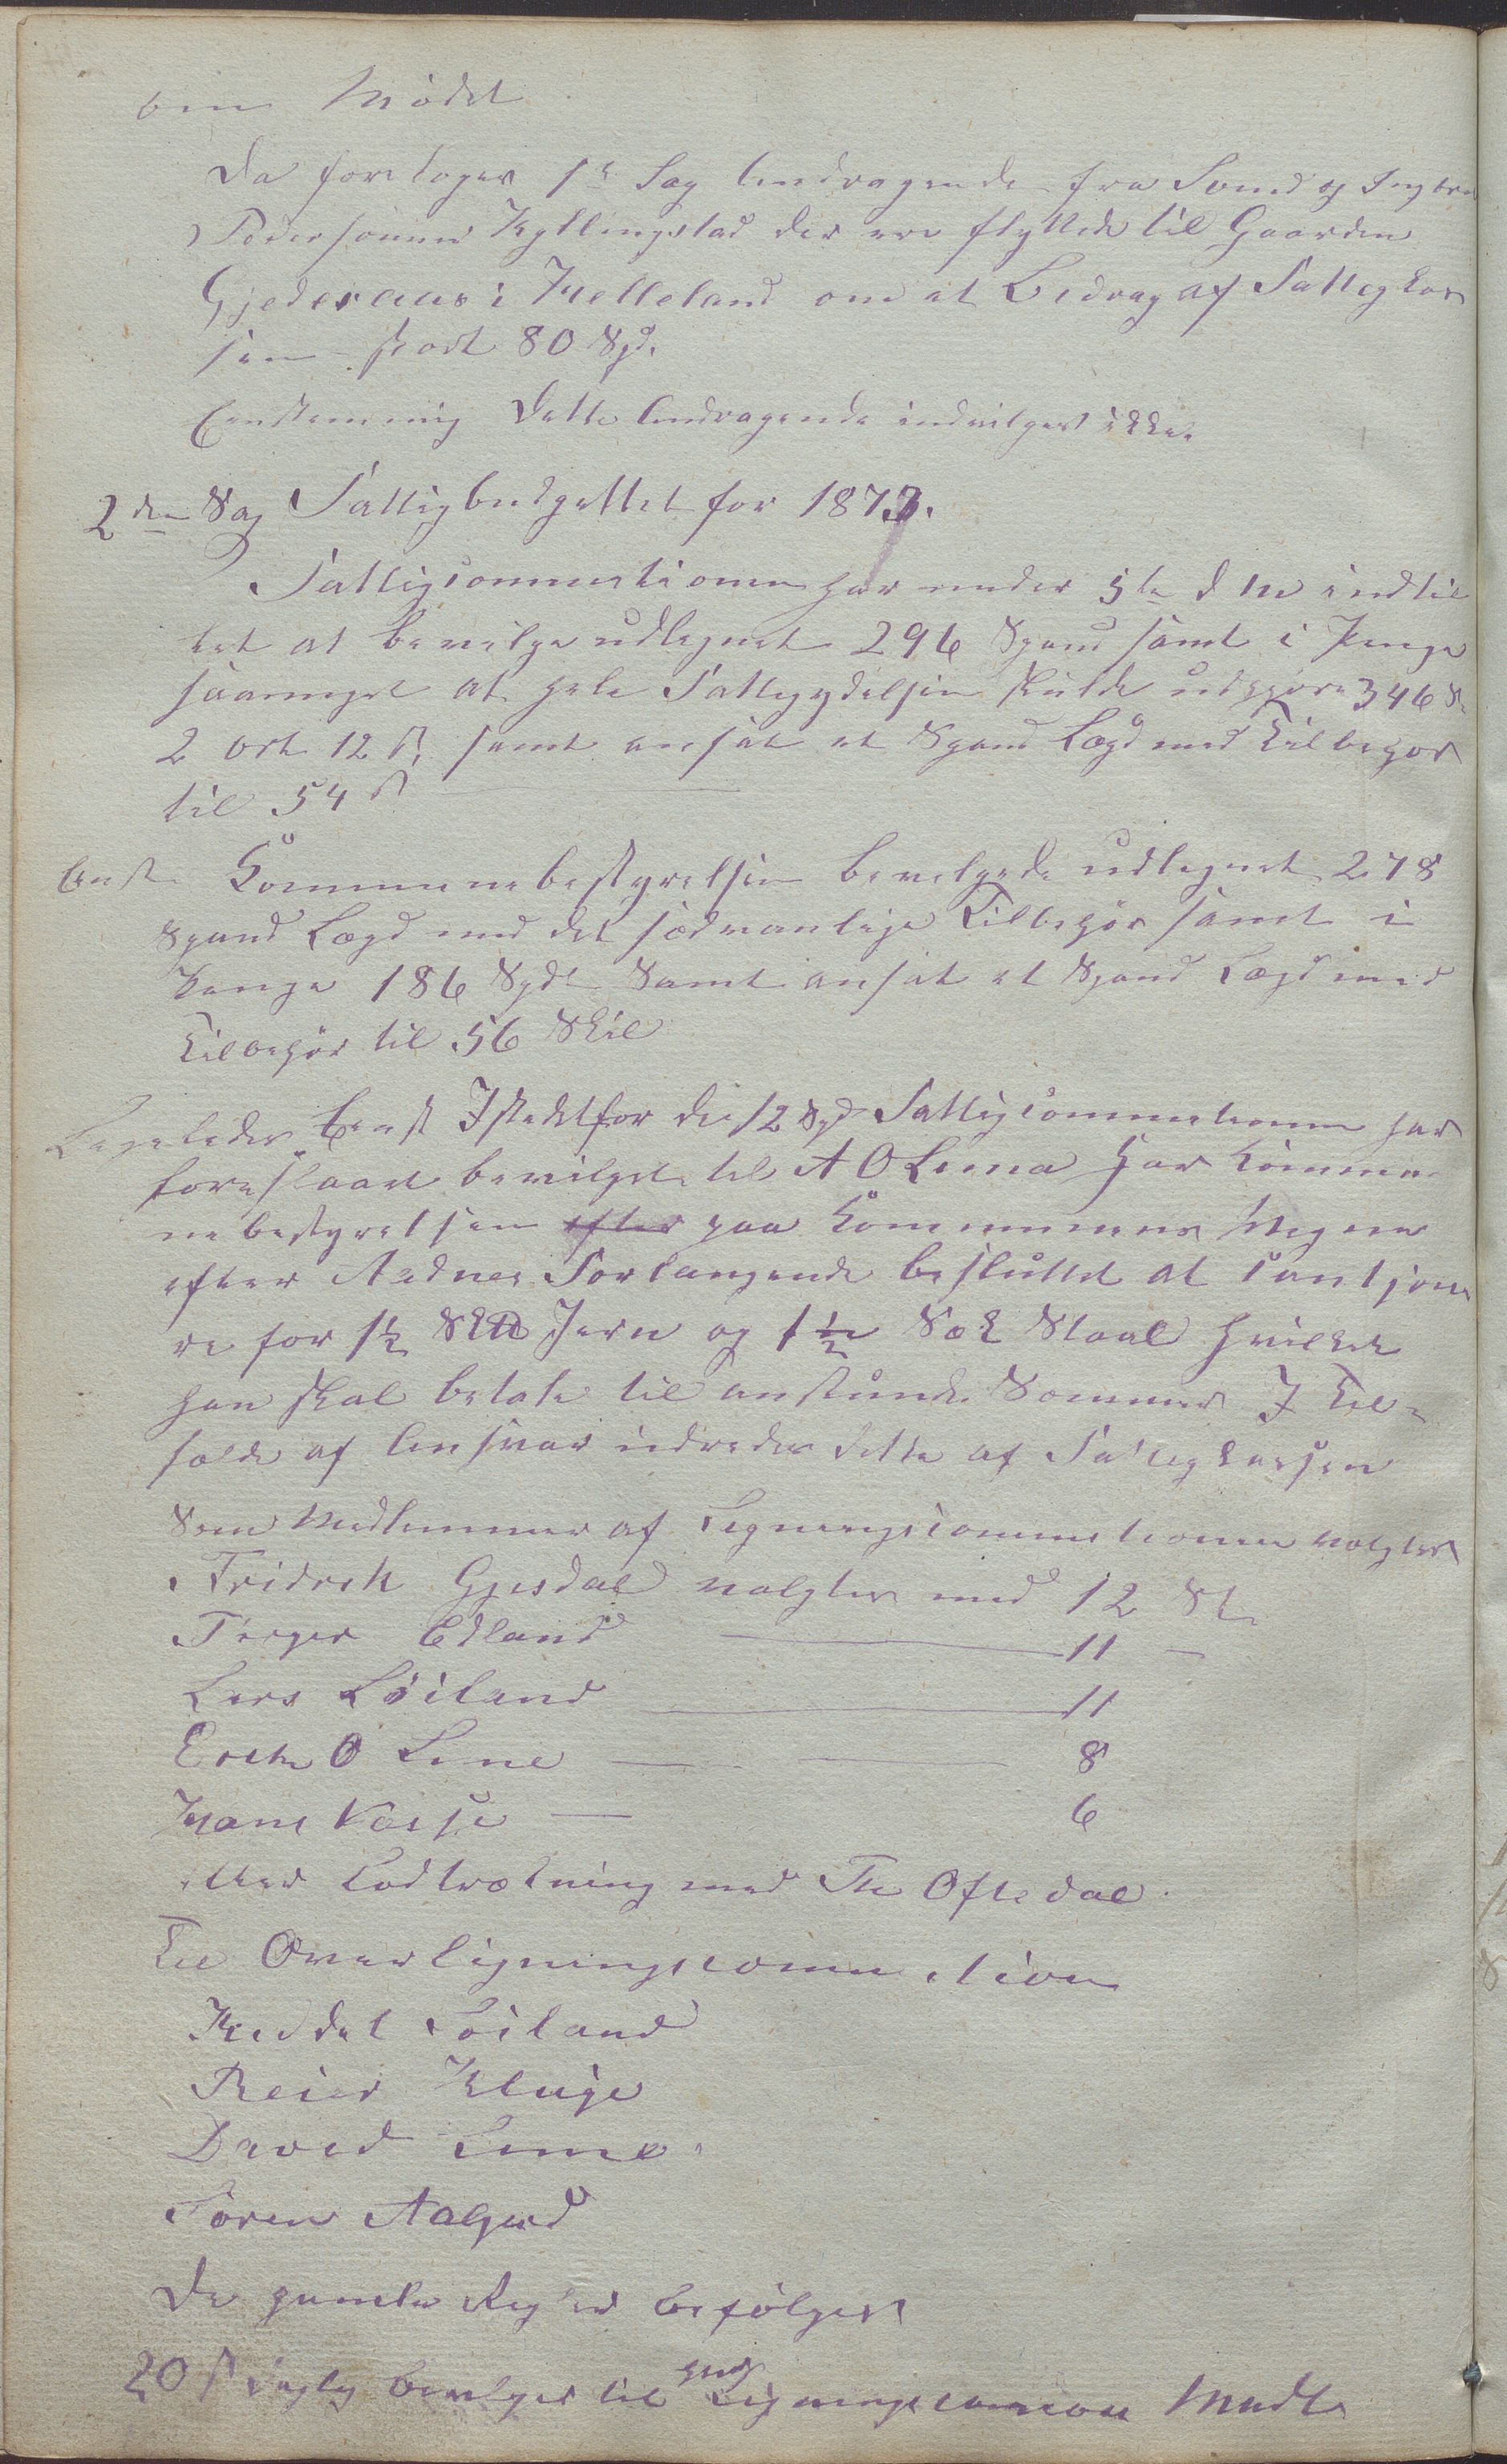 om Mødet
Da foretoges 1e Sag Andragende fra Svend og Ingbret
Pedersønner Kyllingstad der ere flyttede til Gaarden
Gjederaas i Helleland om et Bidrag af Fattigkas
sen stort 80 Spd.
Eenstemmig Dette Andragende indvilges ikke.
2den Sag Fattigbudgettet for 1873.
Fattigcommissionen har under 5te d M indstil
let at bevilge udlignet 296 Spand samt i Penge
saameget at hele Fattigydelsen skulde udgjøre 346 Sp
2 ort 12 ß samt ansat et Spand Lægd med Tilbehør
til 54 ß
Eenst Kommunebestyrelsen bevilgede udlignet 278
Spand Lægd med det sædvanlige Tilbehør samt i
Penge 186 Spdl Samt ansat et Spand Lægd med
Tilbehør til 56 Skil
Ligeledes Eenst Istedetfor de 12 Spd Fattigcommissionen har
foreslaaet bevilget til A O Lima har Kommu
nebestyrelsen efter paa Kommunens Vegne
efter Aadnes Forlangende besluttet at cautjone
re for 1½ Jern og 1½ Staal hvilket
han skal betale til anstundende Sommer I Til-
fælde af Ansvar udredes dette af Fattigkassen
Som Medlemmer af Ligningscommissionen valgtes
Fridrik Gjesdal valgtes med 12 St
Tørger Edland 11 —
Lars Løiland 11
Erik O Lime 8
Hans 6
efter Lodtrækning med Th Oftedal
Til Overligningscommission
Reier Kluge
David Lime
Søren Aalgaard
De gamle Regler befølges
20 ß daglig bevilges til hver Ligningscommon Medl